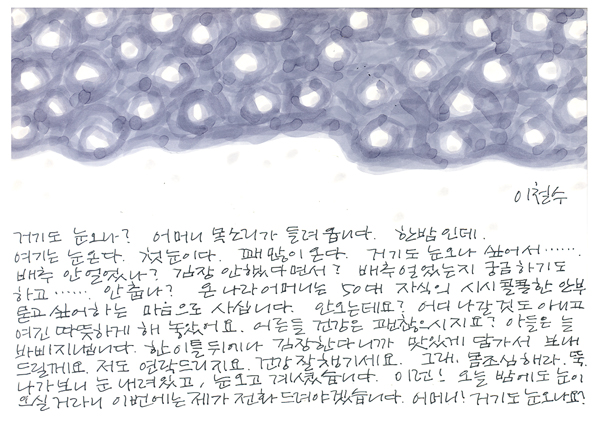 이철수
거기도 눈오나? 어머니 목소리가 들려옵니다. 한밤인데.
여기는 눈온다. 첫눈이다. 꽤 많이 온다. 거기도 눈오나 싶어서…….
배추 안 얼었나? 김장 안했다면서? 배추 얼었는지 궁금하기도
하고……. 안 춥나? 온 나라 어머니는 50대 자식의 시시콜콜한 안부
묻고 싶어하는 마음으로 사십니다. 안오는데요? 어디 나갈것도 아니고
여긴 따뜻하게 해 놓았어요. 어른들 건강은 괜찮으시지요? 아들은 늘
바삐지냅니다. 한 이틀 뒤에나 김장한다니까 맛있게 담가서 보내
드릴께요. 저도 연락드리지요. 건강 잘 챙기세요. 그래, 몸조심해라. 뚝.
나가보니 눈 내려있고, 눈오고 계셨습니다. 이런! 오늘 밤에도 눈이
오실거라니 이번에는 제가 전화 드려야겠습니다. 어머니! 거기도 눈오나요?